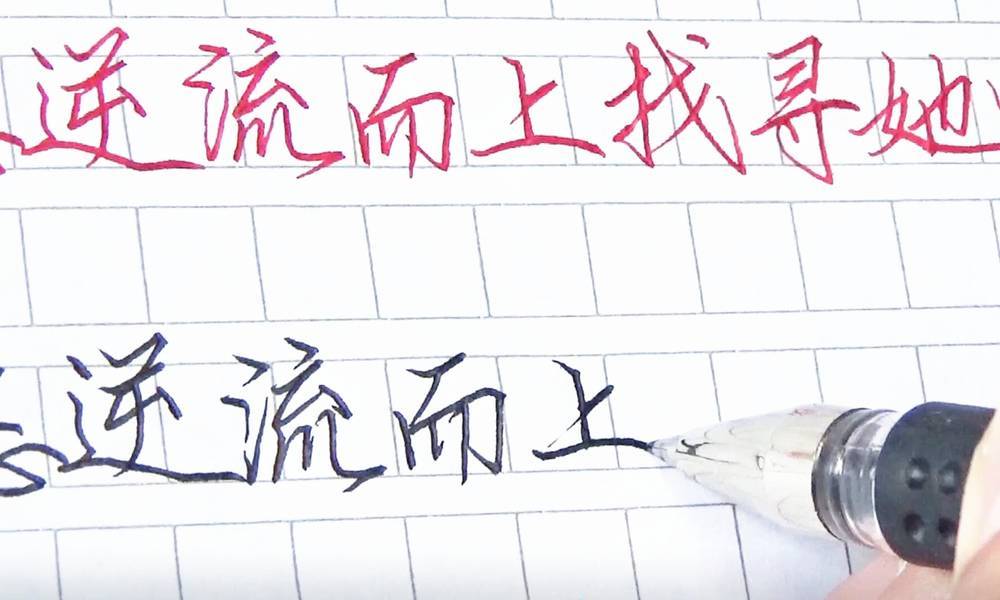 逆流而上找寻她
逆流而上